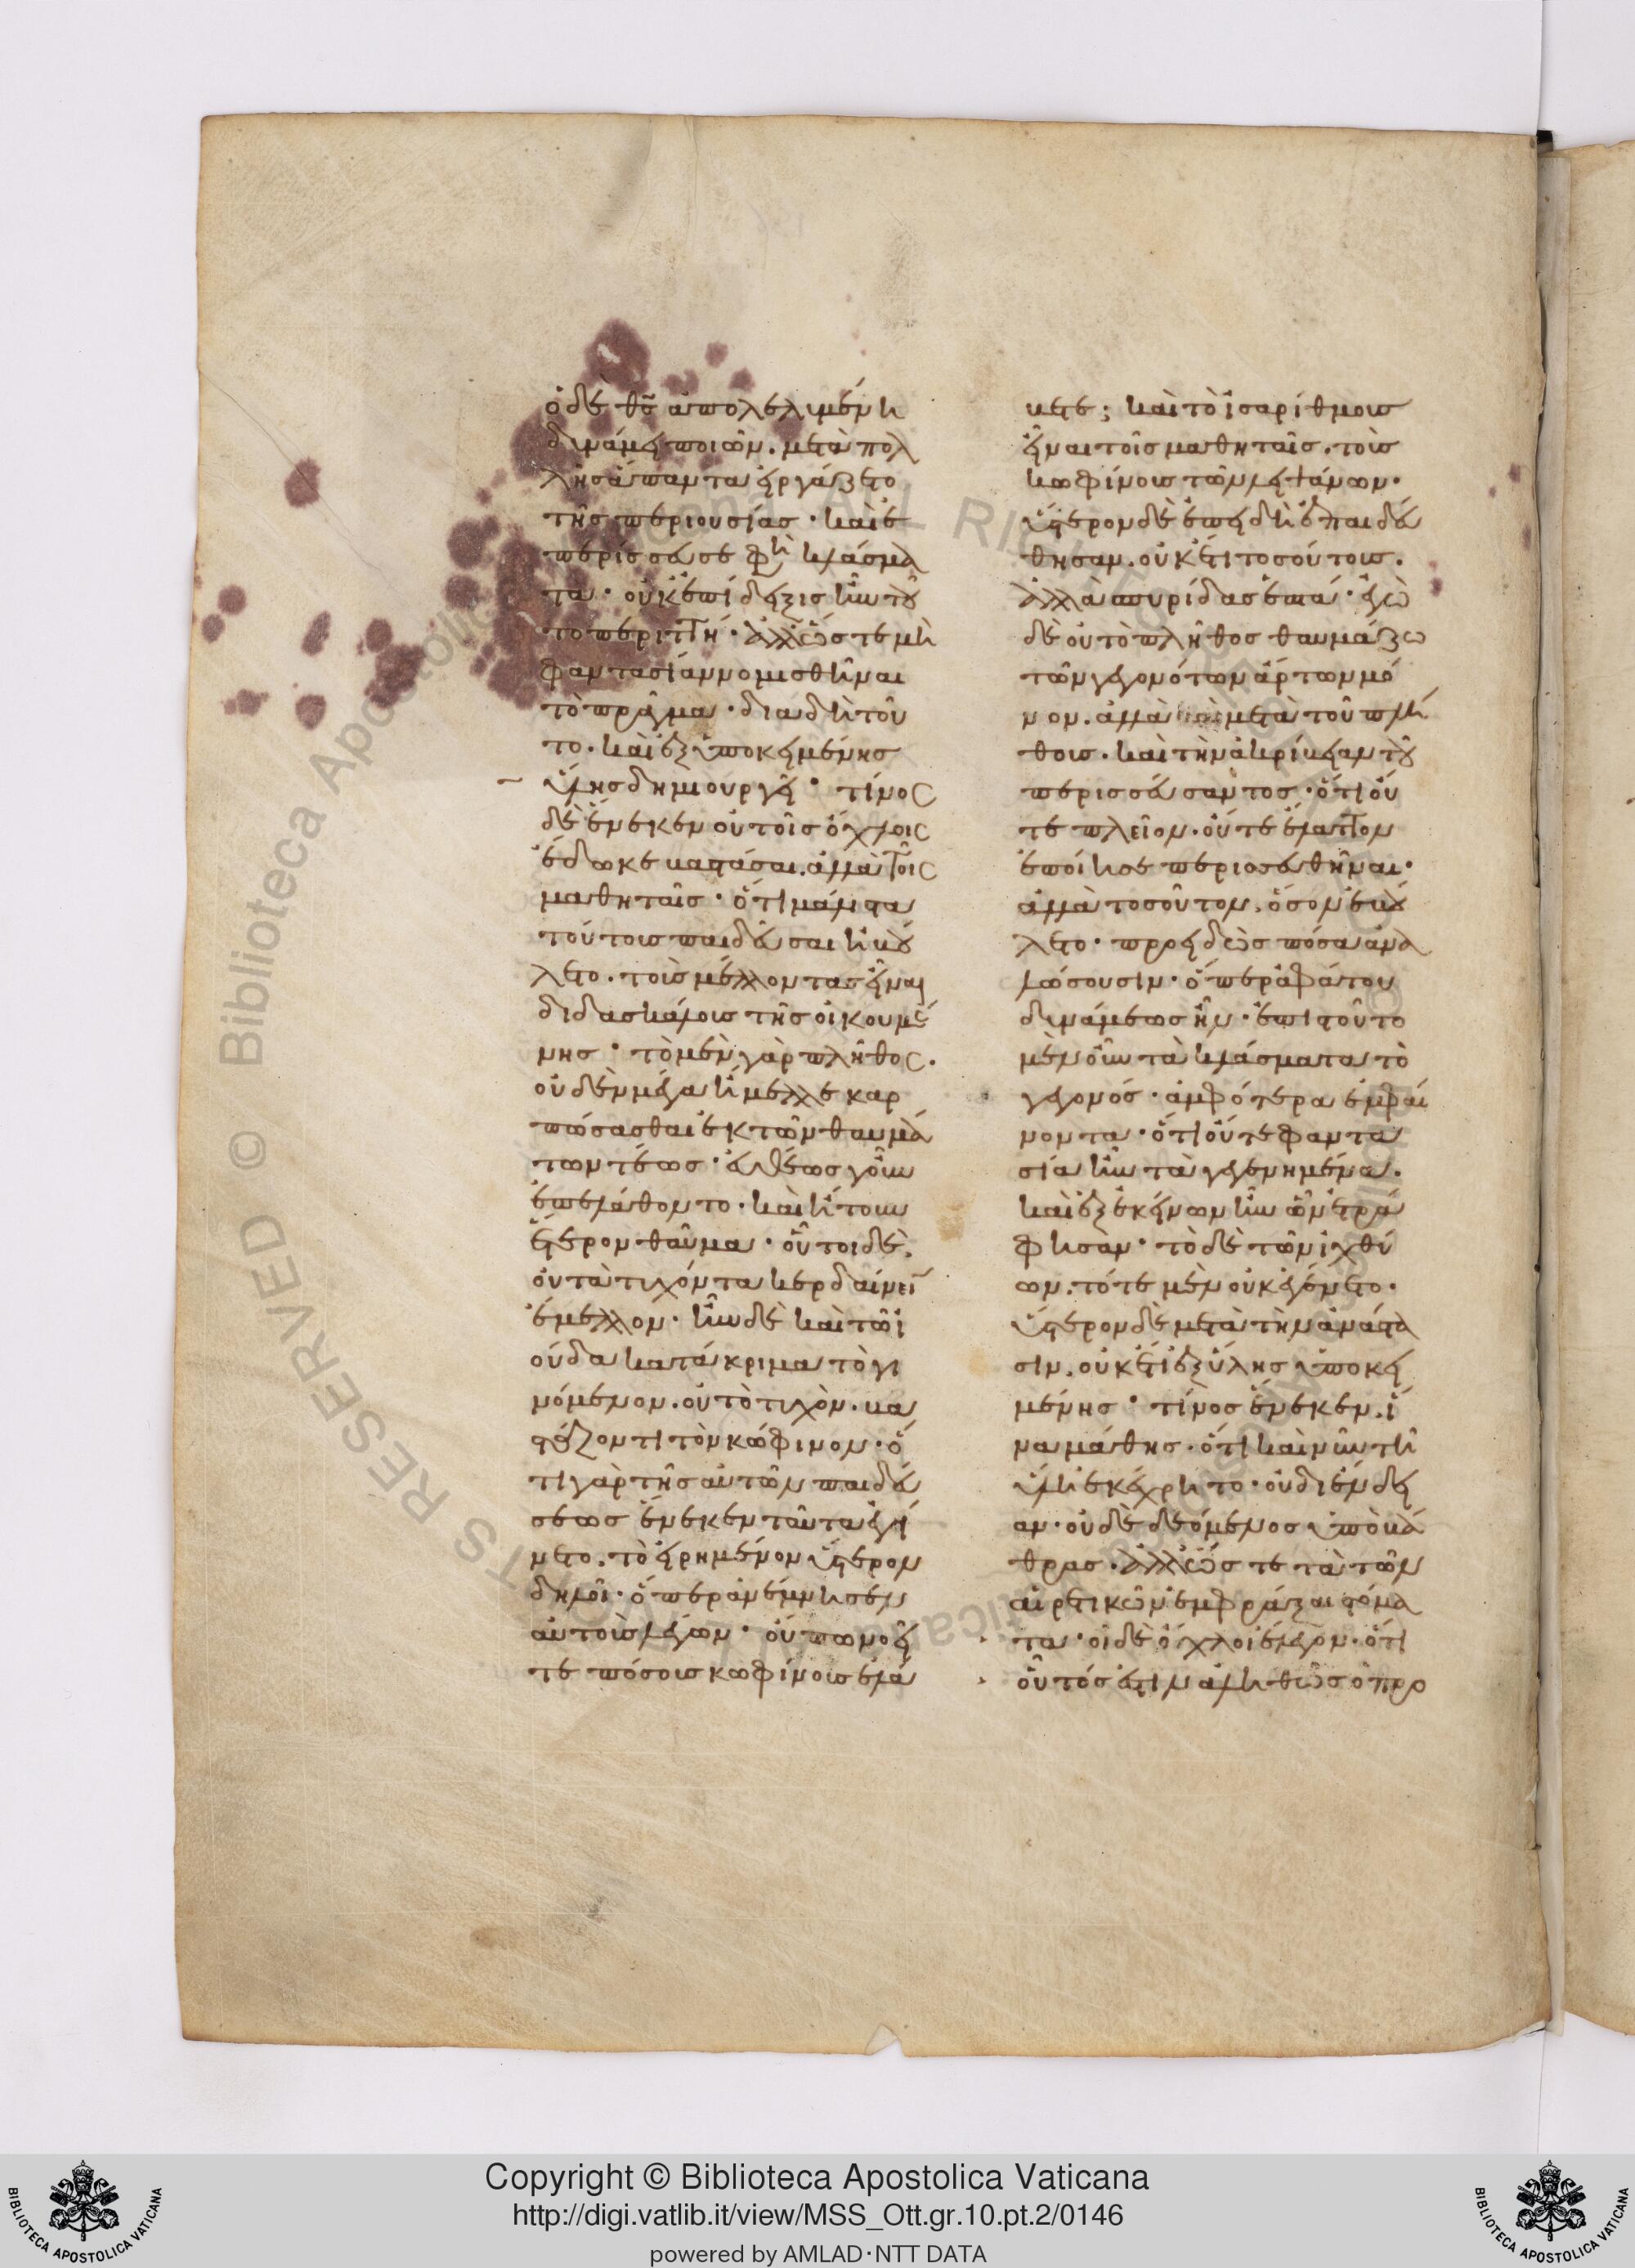 ὁ δὲ θς̄ ἀπολελυμένη
δυνάμει ποιῶν. μετὰ πολ
λῆς ἅπαντα εἰργάζετο
τῆς περιουσίας · καὶ ἐ
περίσσευσε φη κλάσμα
τα · οὐκ ἐπίδειξις ἦν τοῦ
το περιττὴ · ἀλλ' ὥστε μὴ
φαντασίαν νομισθῆναι
τὸ πρᾶγμα · διαδὴ τοῦ
το. καὶ ἐξ ὑποκειμένης
ὕλης δημιουργεῖ · τίνος
δὲ ἕνεκεν οὐ τοῖς ὄχλοις
ἔδωκε βαστάσαι. ἀλλὰ τοῖς
μαθηταῖς · ὅτι μάλιστα
τούτους παιδεῦσαι ἠβού
λετο. τοὺς μέλλοντας εἶναι
διδασκάλους τῆς οἰκουμέ
νης · τὸ μὲν γὰρ πλῆθος.
οὐδὲν μέγα ἤμελλε καρ
πώσασθαι ἐκ τῶν θαυμά
των τέως · εὐθέως γοῦν
ἐπελάθοντο · καὶ ἤτουν
ἕτερον θαῦμα · οὗτοι δὲ.
οὐ τὰ τυχόντα κερδαίνειν
ἔμελλον · ἦν δὲ καὶ τῶι ἰ
ούδα κατάκριμα τὸ γι
νόμενον. οὐ τὸ τυχὸν. βα
στάζοντι τὸν κόφινον · ὅ
τι γὰρ τῆς αὐτῶν παιδεύ
σεως ἕνεκεν ταῦτα ἐγί
νετο. τὸ εἰρημένον ὕστερον
δηλοῖ · ὅπερ ἀνέμνησεν
αὐτοὺς λέγων · οὔπω νοεῖ
τε πόσους κοφίνους ἐλά
βετε; καὶ τὸ ἰσαρίθμους
εἶναι τοῖς μαθηταῖς. τοὺς
κοφίνους τῶν λειψάνων ·
ὕστερον δὲ ἐπειδὴ ἐπαιδεύ
θησαν. οὐκέτι τοσούτους.
ἀλλὰ σπυρίδας ἑπτά · ἐγὼ
δὲ οὐ τὸ πλῆθος θαυμάζω
τῶν γεγονότων ἄρτων μό
νον. ἀλλὰ καὶ μετὰ τοῦ πλή
θους. καὶ τὴν ἀκρίβειαν τοῦ
περισσεύσαντος · ὅτι οὔ
τε πλεῖον. οὔτε ἔλαττον
ἐποίησε περισσευθῆναι ·
ἀλλὰ τοσοῦτον. ὅσον ἐβού
λετο · προειδὼς πόσα ἀνα
λώσουσιν · ὅπερ ἀφάτου
δυνάμεως ἦν · ἐπιστοῦτο
μὲν οὖν τὰ κλάσματα τὸ
γεγονός · ἀμφότερα ἐμφαί
νοντα · ὅτι οὔτε φαντα
σία ἦν τὰ γεγενημένα.
καὶ ἐξ ἐκείνων ἦν ὧν ἐτρά
φησαν · τὸ δὲ τῶν ἰχθύ
ων. τότε μὲν οὐκ ἐγένετο.
ὕστερον δὲ μετὰ τὴν ἀνάστα
σιν. οὐκέτι ἐξ ὕλης ὑποκει
μένης · τίνος ἕνεκεν. ἵ
να μάθης. ὅτι καὶ νῦν τῆ
ὕλη ἐκέχρητο · οὐ δι' ἔνδει
αν · οὐδὲ δεόμενος ὑποβά
θρας · ἀλλ' ὥστε τὰ τῶν
αἱρετικῶν ἐμφράξαι στόμα
τα · οἱ δὲ ὄχλοι ἔλεγον · ὅτι
οὗτός ἐστιν ἀληθῶς ὁ προ
Copyright © Biblioteca Apostolica Vaticana
http://digi.vatlib.it/view/MSS_Ott.gr.10.pt.2/0146
powered by AMLAD·NTT DATA
BIBLIOTECA APOSTOLICA VATICANA
BIBLIOTECA APOSTOLICA VATICANA